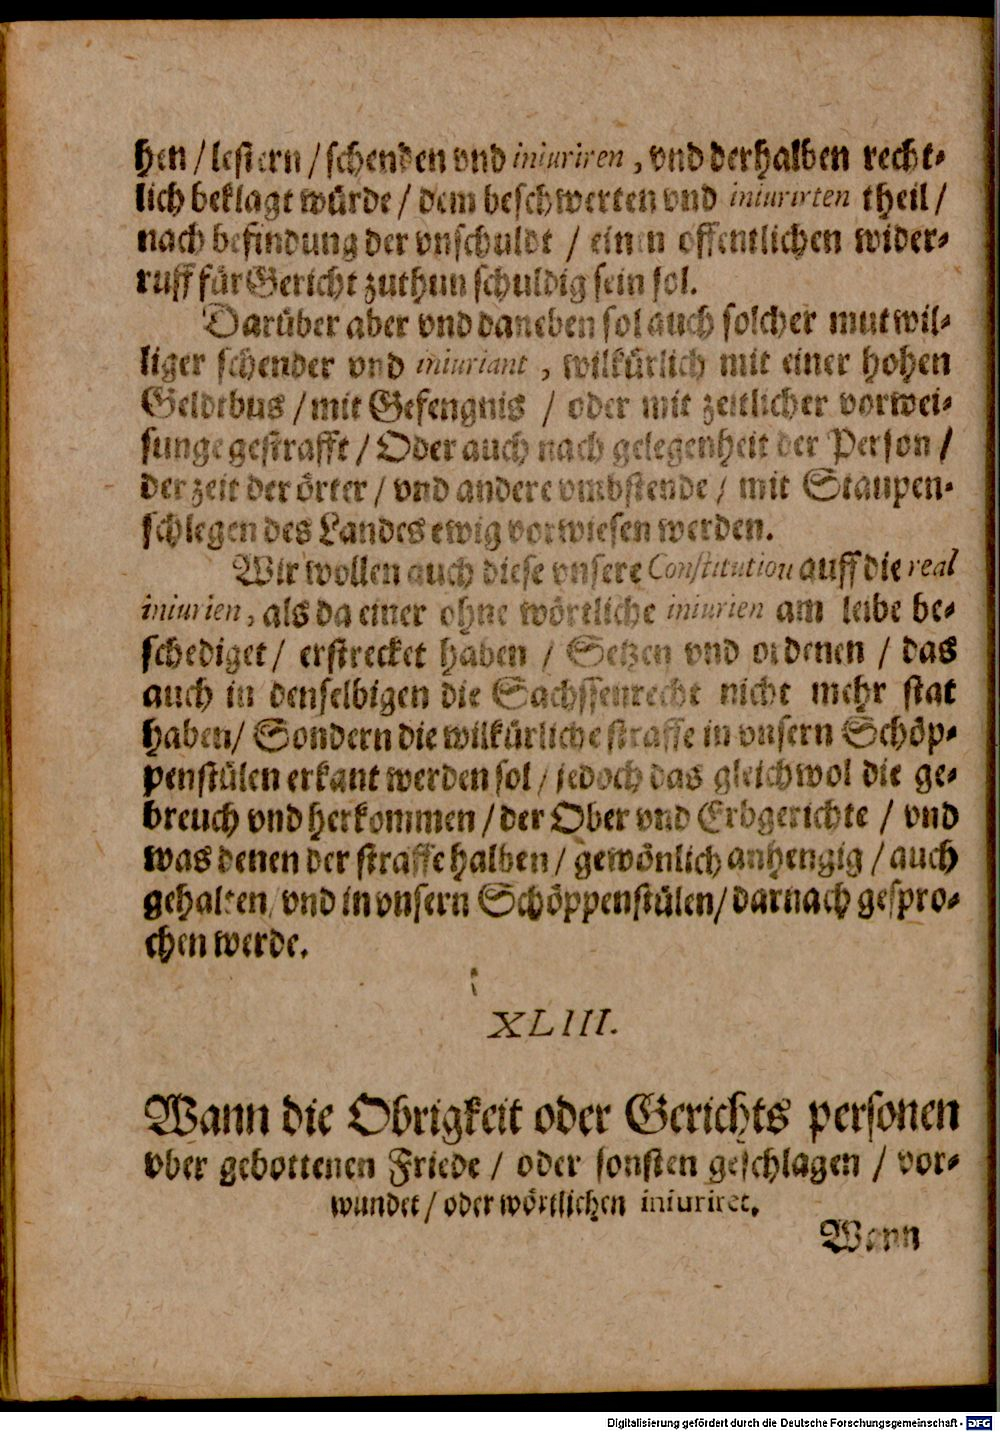 hen / lestern / schenden vnd iniuriren, vnd derhalben recht-
lich beklagt würde / dem beschwerten vnd iniurirten theil /
nach befindung der vnschuldt / einen offentlichen wider-
ruff für Gericht zuthun schuldig sein sol.
Darüber aber vnd daneben sol auch solcher mutwil-
liger schender vnd iniuriant, wilkürlich mit einer hohen
Geldtbus / mit Gefengnis / oder mit zeitlicher vorwei-
sunge gestrafft / Oder auch nach gelegenheit der Person /
der zeit der örter / vnd andere vmbstende / mit Staupen-
schlegen des Landes ewig vorwiesen werden.
Wir wollen auch diese vnsere Constitution auff die real
iniurien, als da einer ohne wörtliche iniurien am leibe be-
schediget / erstrecket haben / Setzen vnd ordenen / das
auch in denselbigen die Sachssenrecht nicht mehr stat
haben / Sondern die wilkürliche straffe in vnsern Schöp-
penstülen erkant werden sol / jedoch das gleichwol die ge-
breuch vnd herkommen / der Ober vnd Erbgerichte / vnd
was denen der straffe halben / gewönlich anhengig / auch
gehalten / vnd in vnsern Schöppenstülen / darnach gespro-
chen werde.
XLIII.
Wann die Obrigkeit oder Gerichts personen
vber gebottenen Friede / oder sonsten geschlagen / vor-
wundet / oder wörtlichen iniuriret.
Wann
Digitalisierung gefördert durch die Deutsche Forschungsgemeinschaft - DFG